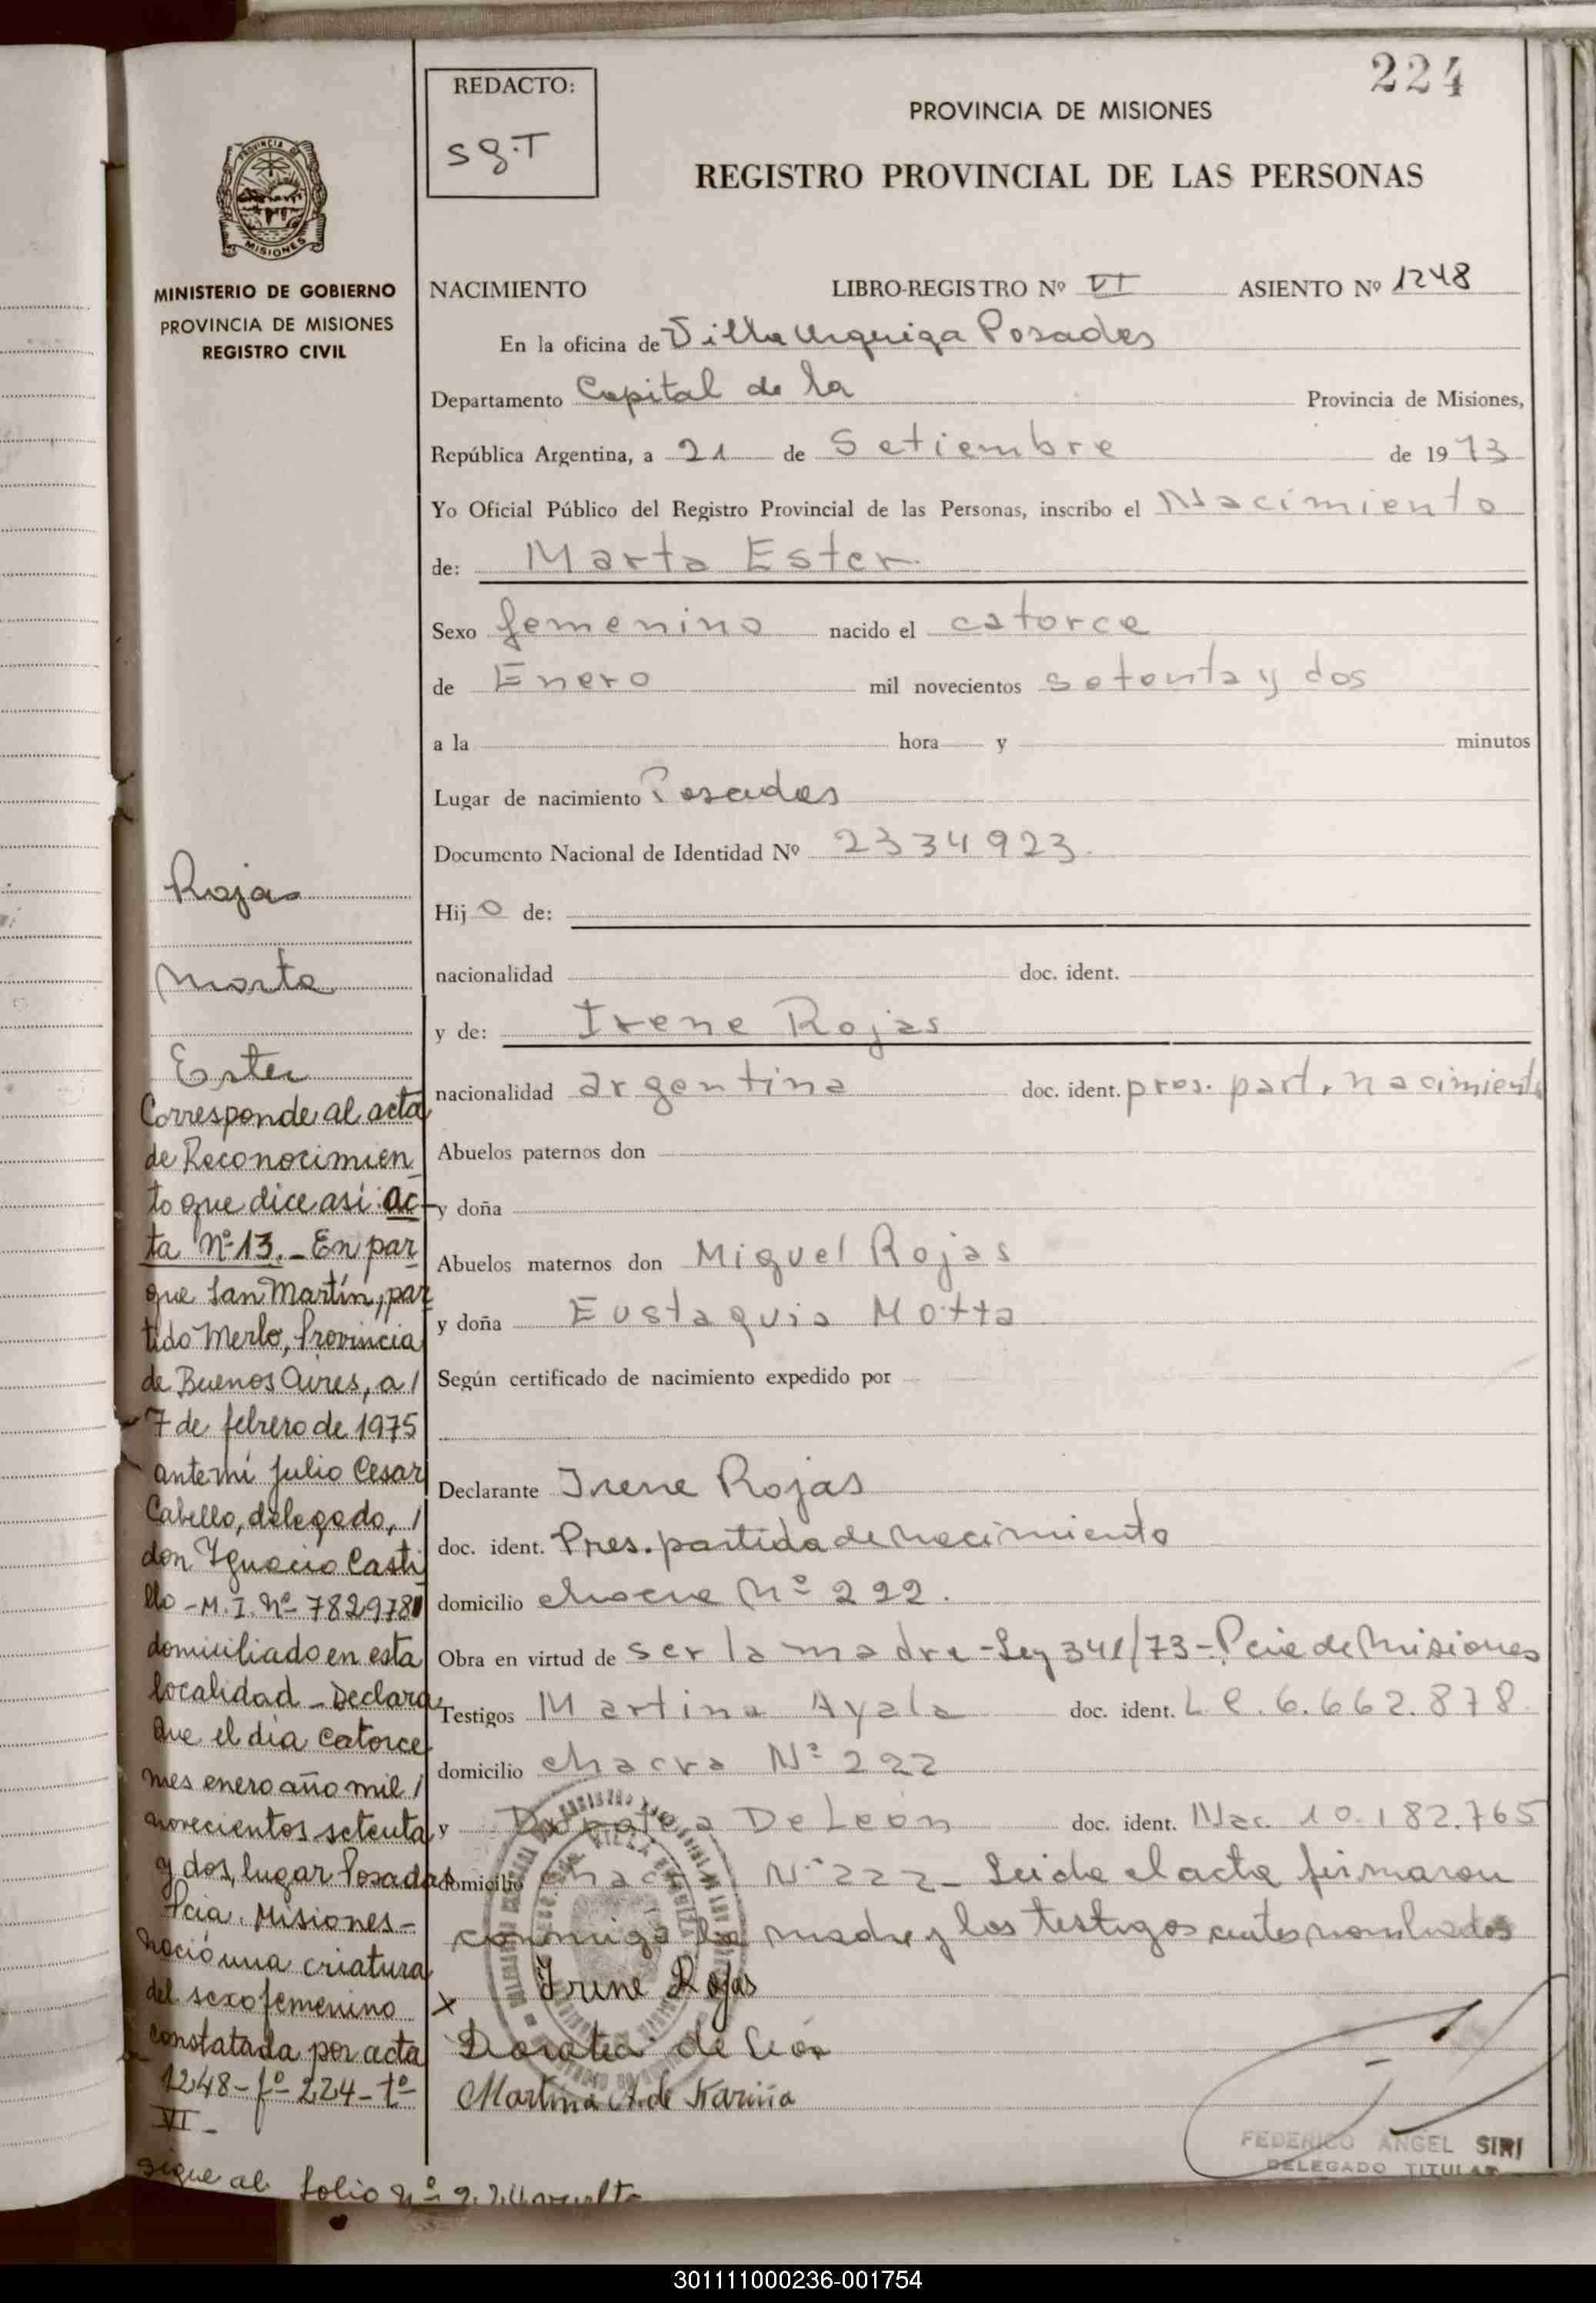 224
REDACTO:
S g.T
PROVINCIA DE MISIONES
REGISTRO PROVINCIAL DE LAS PERSONAS
MISIONES
MINISTERIO DE GOBIERNO
PROVINCIA DE MISIONES
REGISTRO CIVIL
NACIMIENTO LIBRO-REGISTRO Nº VI ASIENTO Nº 1248
En la oficina de Villa Urquiza Posadas
Departamento Capital de la Provincia de Misiones,
República Argentina, a 21 de Setiembre de 1973
Yo Oficial Público del Registro Provincial de las Personas, inscribo el Nacimiento
de: Marta Ester
Sexo femenino nacido el catorce
de Enero mil novecientos setenta y dos
a la hora y minutos
Lugar de nacimiento Posadas
Documento Nacional de Identidad Nº 2334923.
Hij o de:
nacionalidad doc. ident.
y de: Irene Rojas
nacionalidad argentina doc. ident. pres. part. nacimiento
Abuelos paternos don
y doña
Abuelos maternos don Miguel Rojas
y doña Eustaquia Motta
Según certificado de nacimiento expedido por
Declarante Irene Rojas
doc. ident. Pres. partida de nacimiento
domicilio chacra Nº 222.
Obra en virtud de ser la madre - Ley 341/73 - Pcia de Misiones
Testigos Martina Ayala doc. ident. L C. 6.662.878.
domicilio chacra Nº 222
y Dorotea De León doc. ident. Nac. 10.182.765
domicilio chacra Nº 222 - Leida el acta firmaron
conmigo la madre y los testigos antes nombrados
x Irene Rojas
Dorotea de León
Martina A. de Fariña
FEDERICO ANGEL SIRI
DELEGADO TITULAR
Rojas
Marta
Ester
Corresponde al acta
de Reconocimien
to que dice así: ac-
ta Nº 13. - En par
que San Martín, par
tido Merlo, Provincia
de Buenos Aires, a /
7 de febrero de 1975
ante mí Julio Cesar
Cabello, delegado, /
don Ignacio Casti
llo - M.I. Nº 7829781
domiciliado en esta
localidad - Declara
Que el día catorce
mes enero año mil /
novecientos setenta
y dos, lugar Posadas
Pcia. Misiones -
nació una criatura
del sexo femenino
constatada por acta
1248 - fº 224 - tº
VI -
sigue al folio nº 224 vuelta
301111000236-001754